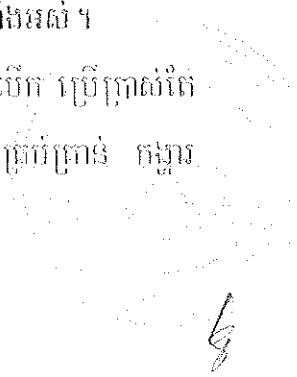 ាំងអស់ ។
បើក ប្រើប្រាស់តែ
គ្រប់គ្រាន់ កង្វារ